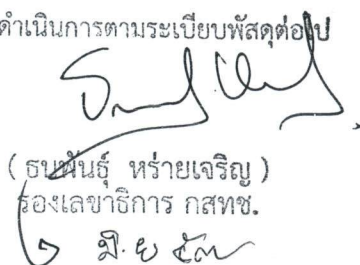 ดำเนินการตามระเบียบพัสดุต่อไป
(ธนพันธุ์ หร่ายเจริญ)
รองเลขาธิการ กสทช.
มิ.ย.